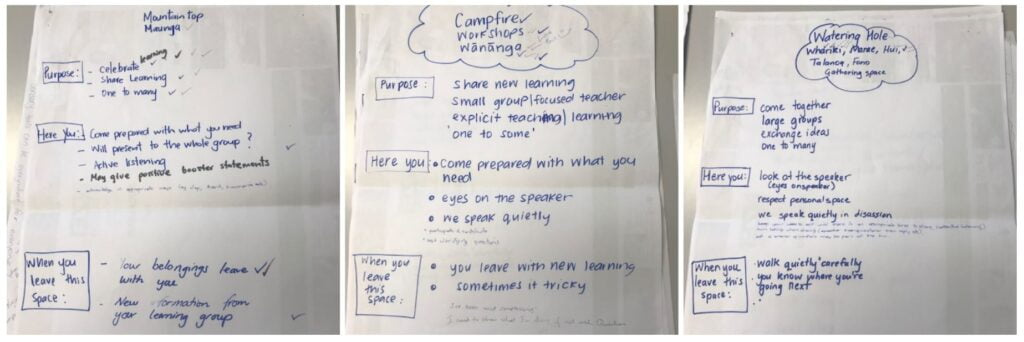 Mountain top
Maunga
Purpose:
- Celebrate learning
- Share Learning
- One to many
Here You:
Come prepared with what you need
- Will present to the whole group?
- Active listening
- May give positive booster statements
When you leave this space:
- Your belongings leave with you
- New formation from your learning group
Campfire
Workshops
Wānānga
Purpose:
share new learning
small group/focused teacher
explicit teaching/learning
'one to some'
Here you:
• Come prepared with what you need
• eyes on the speaker
• we speak quietly
• participate & contribute
• ask clarifying questions
When you leave this space:
• you leave with new learning
• sometimes it tricky
Watering Hole
Whāriki, Marae, Hui,
Talanoa, Fono
Gathering space
Purpose:
come together
large groups
exchange ideas
one to many
Here you:
look at the speaker
(eyes on speaker)
respect personal space
we speak quietly in disassion
When you leave this space:
walk quietly carefully
you know where you're going next